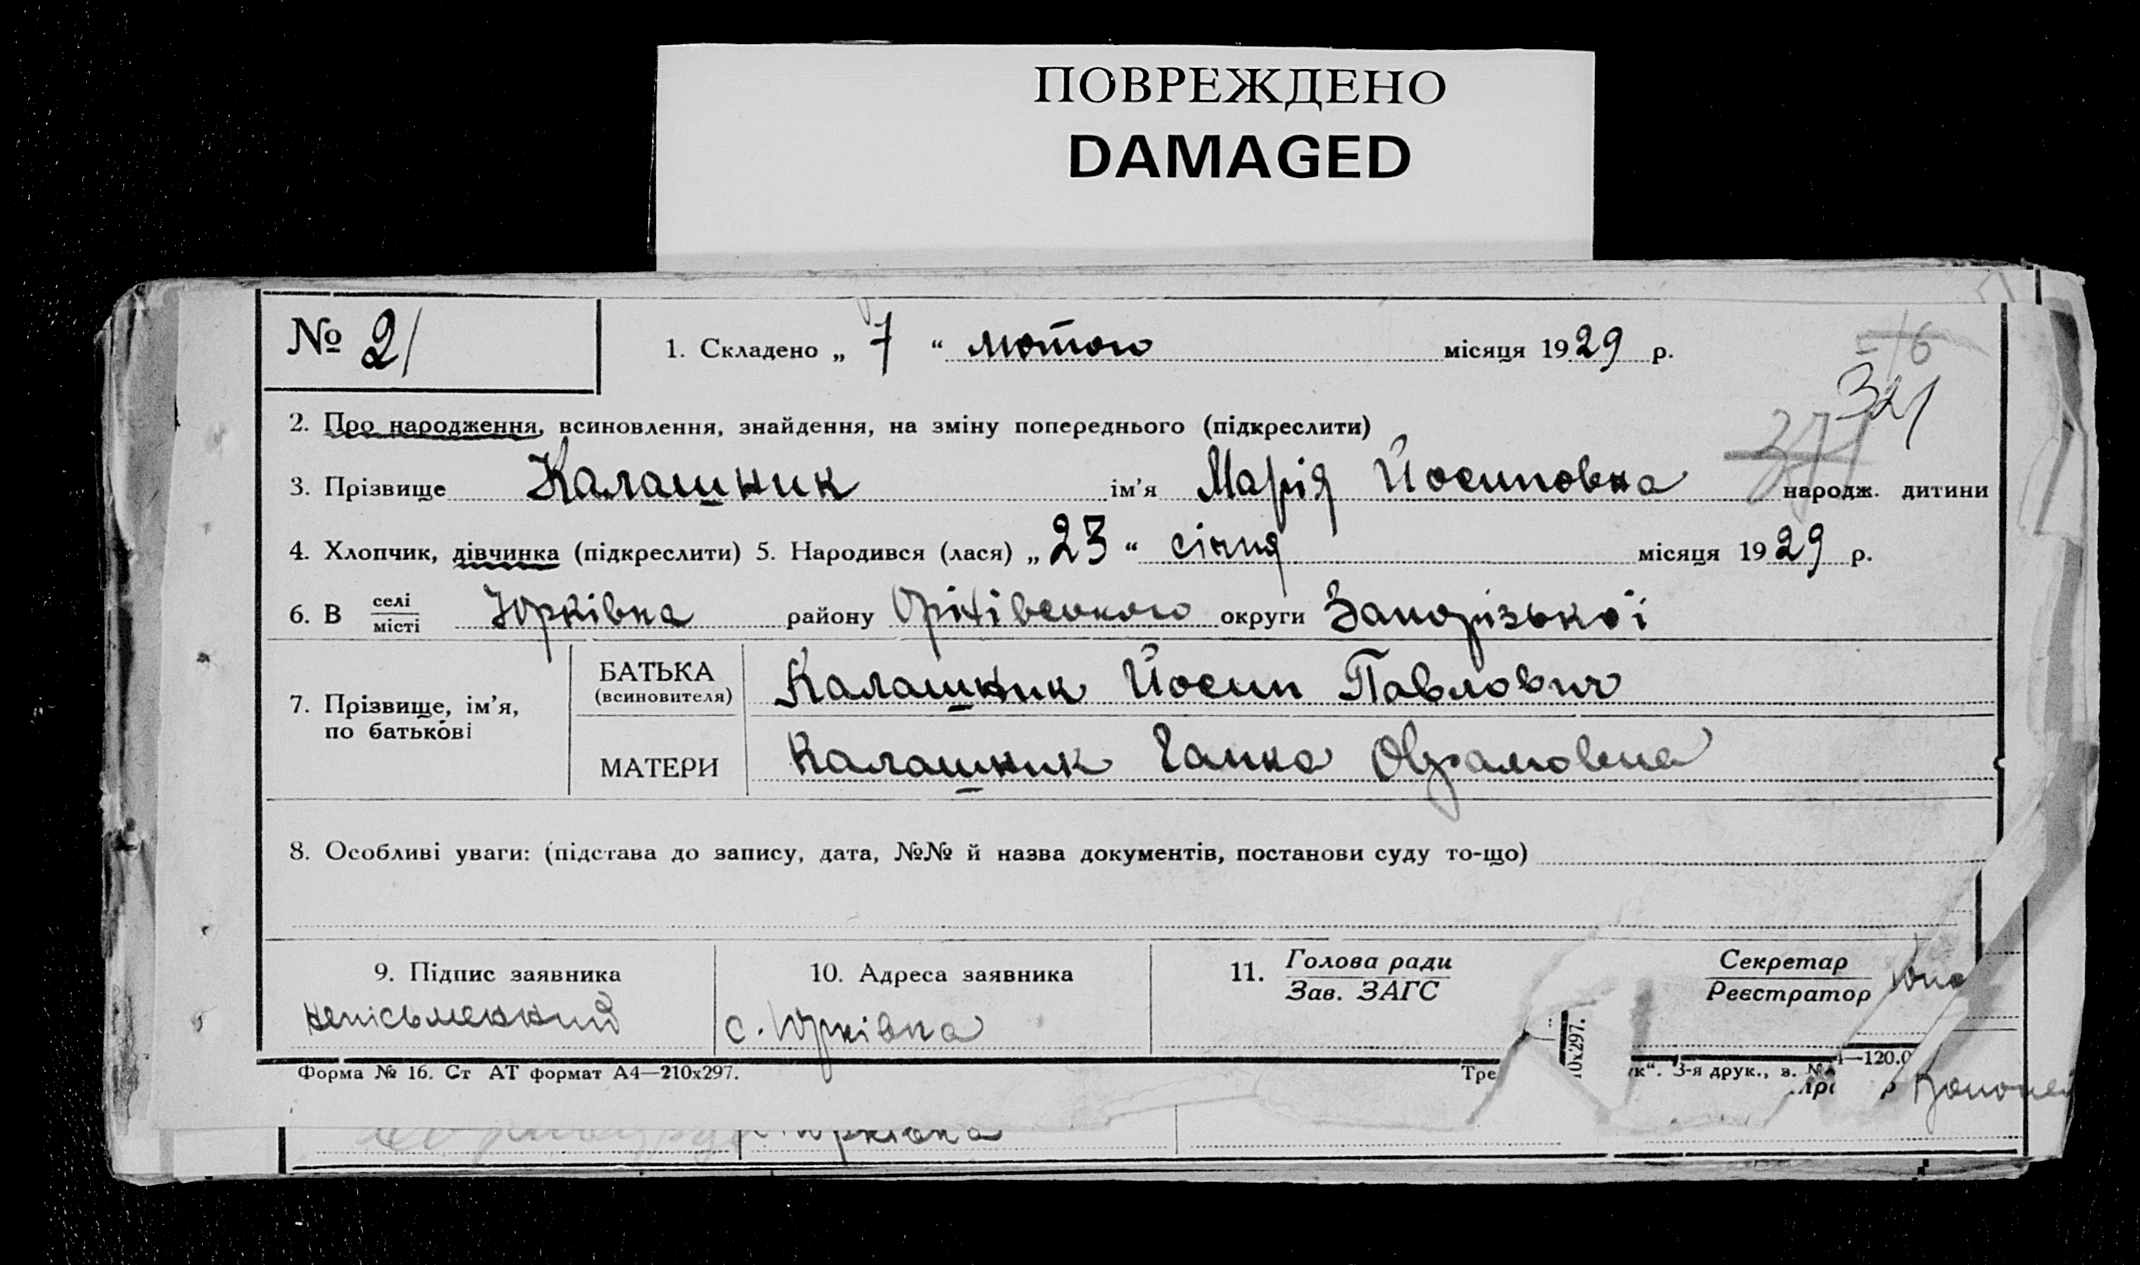 ПОВРЕЖДЕНО
DAMAGED
№ 21
1. Складено „ 7 “ лютого місяця 1929 р.
16
321
2. Про народження, всиновлення, знайдення, на зміну попереднього (підкреслити)
3. Прізвище Калашник ім'я Марія Йосиповна народж. дитини
4. Хлопчик, дівчинка (підкреслити) 5. Народився (лася) „ 23 “ січня місяця 1929 р.
6. В селі Юрківка району Оріхівського округи Запорізької
місті
7. Прізвище, ім'я, по батькові
БАТЬКА (всиновителя) Калашник Йосип Павлович
МАТЕРИ Калашник Ганна
8. Особливі уваги: (підстава до запису, дата, №№ й назва документів, постанови суду то-що)
9. Підпис заявника
непісьменний
10. Адреса заявника
с. Юрківка
11. Голова ради
Зав. ЗАГС
Секретар
Реєстратор
Форма № 16. Ст АТ формат А4—210х297.
Тре
0х297.
к“. 3-я друк., з. №
—120.0
Юрківка